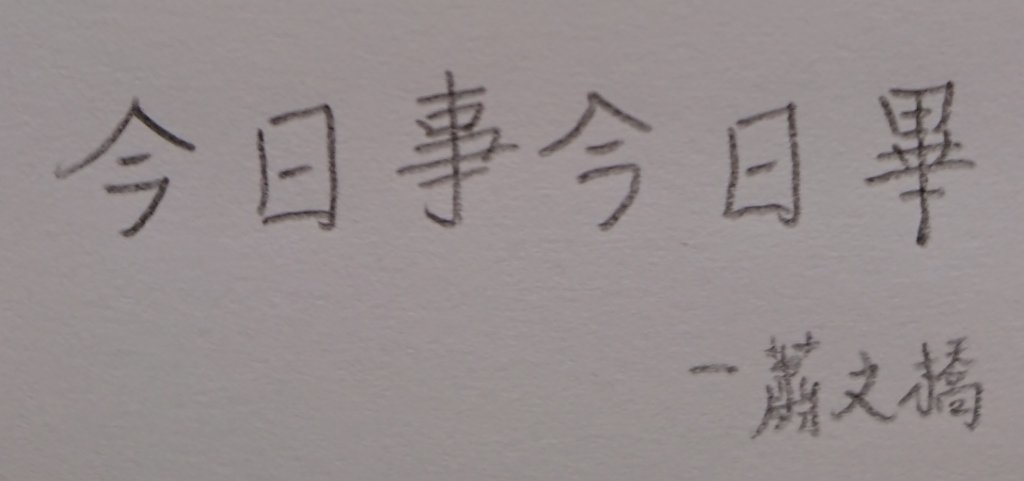 今日事今日畢
－蕭文橋